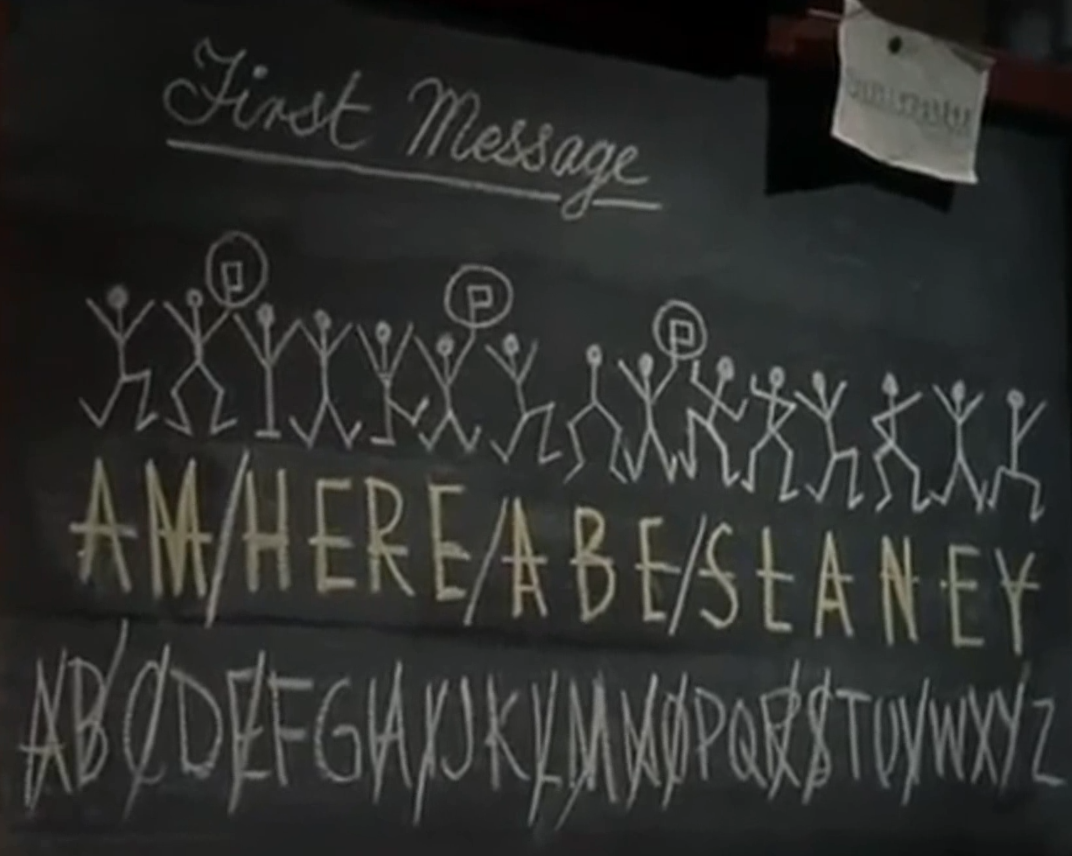 First Message
AM/HERE/ABE/SLANEY
ABCDEFGHIJKLMNOPQRSTUVWXYZ